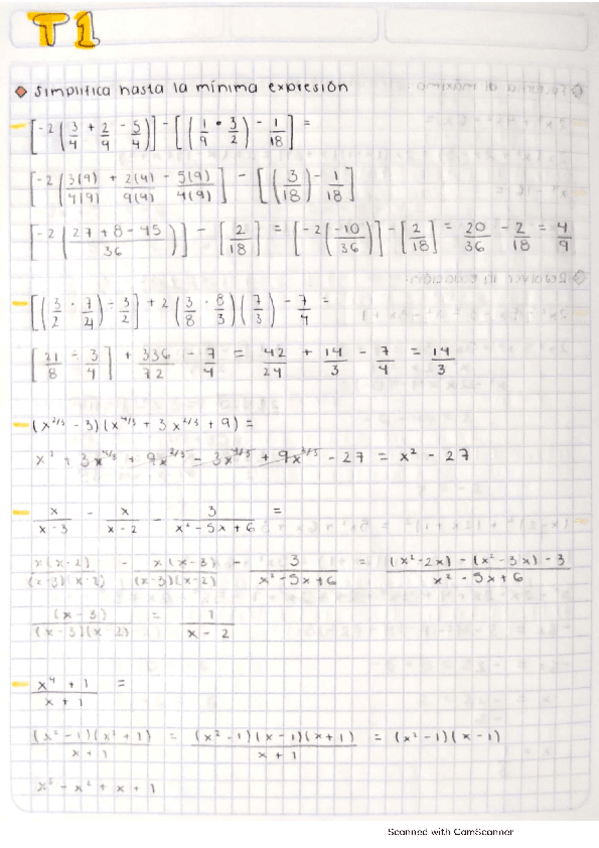 T1
Simplifica hasta la mínima expresión
[-2(3/4 + 2/9 - 5/4)] - [(1/9 · 3/2) - 1/18] =
[-2(3(9)/4(9) + 2(4)/9(4) - 5(9)/4(9)] - [(3/18) - 1/18]
[-2(27 + 8 - 45/36)] - [2/18] = [-2(-10/36)] - [2/18] = 20/36 - 2/18 = 4/9
[(3/2 · 7/4) ÷ 3/2] + 2(3/8 · 8/3)(7/3) - 7/4 =
[21/8 ÷ 3/4] + 336/72 - 7/4 = 42/24 + 14/3 - 7/4 = 14/3
(x^2/3 - 3)(x^4/3 + 3x^2/3 + 9) =
x² + 3x^4/3 + 9x^2/3 - 3x^4/3 + 9x^2/3 - 27 = x² - 27
x/x-3 - x/x-2 - 3/x²-5x+6 =
x(x-2)/(x-3)(x-2) - x(x-3)/(x-3)(x-2) - 3/x²-5x+6 = (x²-2x)-(x²-3x)-3/x²-5x+6
(x-3)/(x-3)(x-2) = 1/x-2
x⁴+1/x+1 =
(x²-1)(x²+1)/x+1 = (x²-1)(x-1)(x+1)/x+1 = (x²-1)(x-1)
x³ - x² + x + 1
Scanned with CamScanner